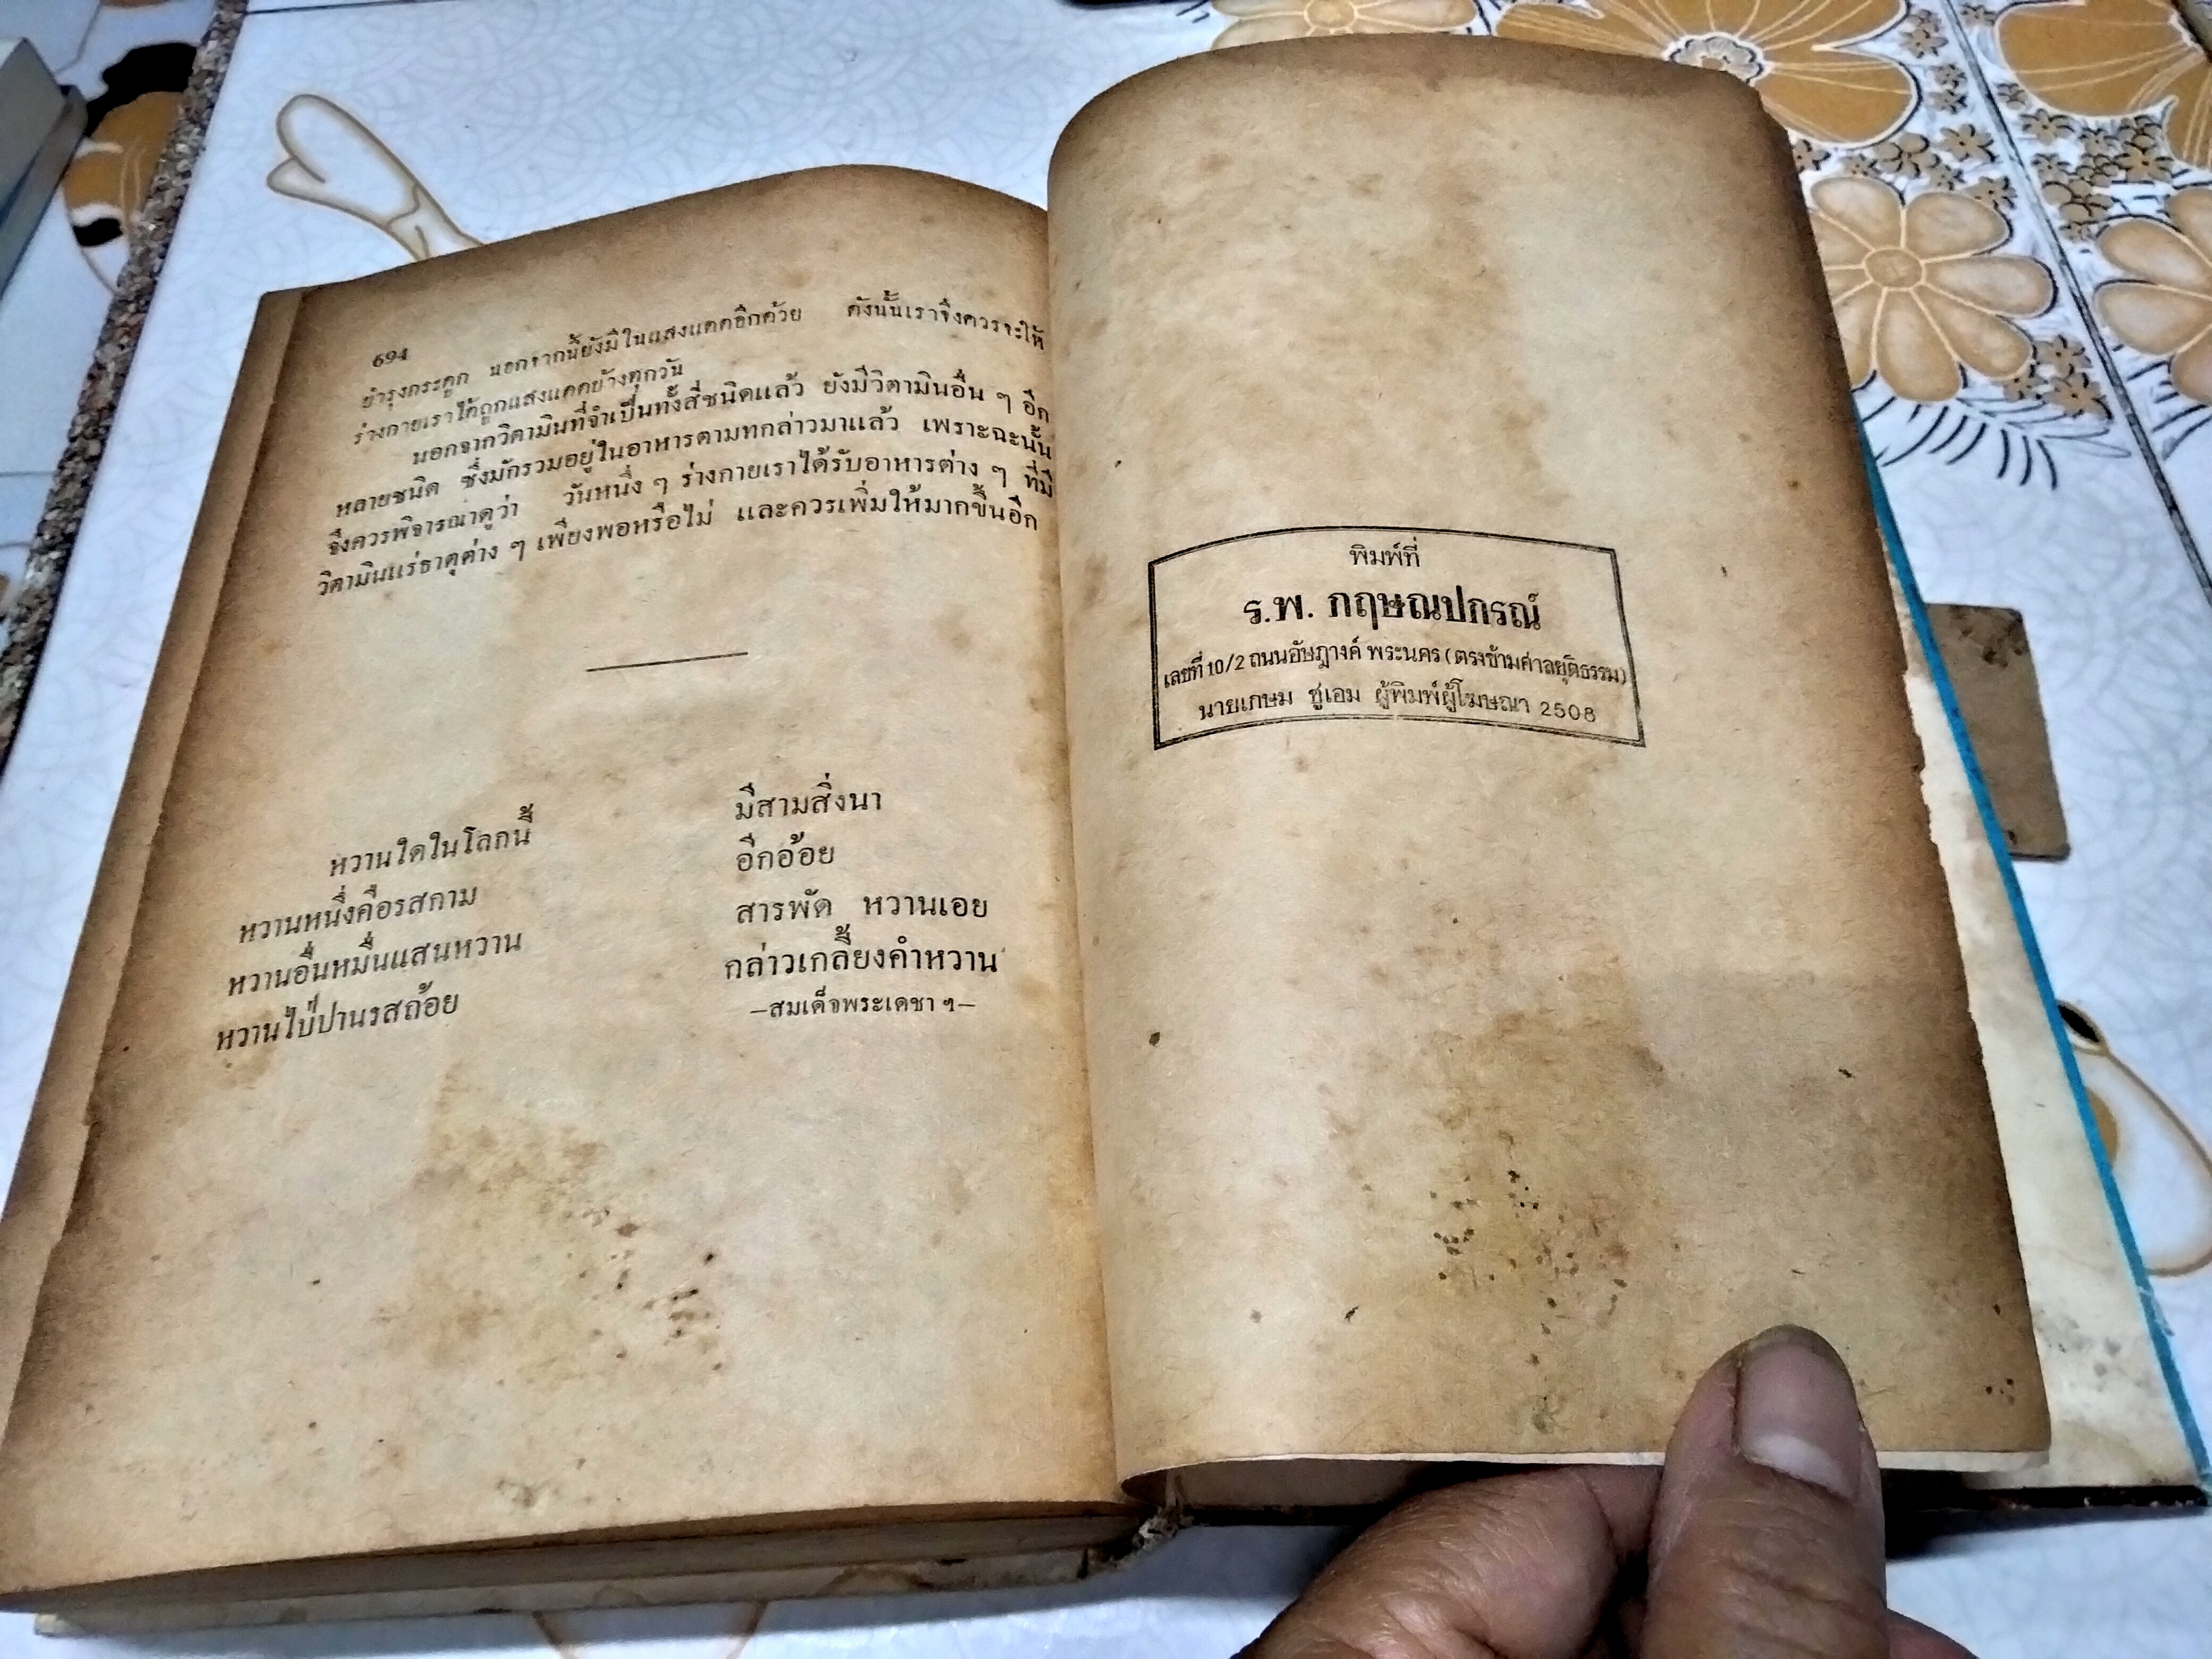 694
บำรุงกระดูก นอกจากนี้ยังมีในแสงแดดอีกด้วย ดังนั้นเราจึงควรจะให้
ร่างกายเราได้ถูกแสงแดดบ้างทุกวัน
นอกจากวิตามินที่จำเป็นทั้งสี่ชนิดแล้ว ยังมีวิตามินอื่น ๆ อีก
หลายชนิด ซึ่งมักรวมอยู่ในอาหารตามทกล่าวมาแล้ว เพราะฉะนั้น
จึงควรพิจารณาดูว่า วันหนึ่ง ๆ ร่างกายเราได้รับอาหารต่าง ๆ ที่มี
วิตามินแร่ธาตุต่าง ๆ เพียงพอหรือไม่ และควรเพิ่มให้มากขึ้นอีก
หวานใดในโลกนี้ มีสามสิ่งนา
หวานหนึ่งคือรสกาม อีกอ้อย
หวานอื่นหมื่นแสนหวาน สารพัด หวานเอย
หวานไป่ปานรสถ้อย กล่าวเกลี้ยงคำหวาน
—สมเด็จพระเดชา ฯ—
พิมพ์ที่
ร.พ. กฤษณปกรณ์
เลขที่ 10/2 ถนนอัษฎางค์ พระนคร (ตรงข้ามศาลยุติธรรม)
นายเกษม ชูเอม ผู้พิมพ์ผู้โฆษณา 2508